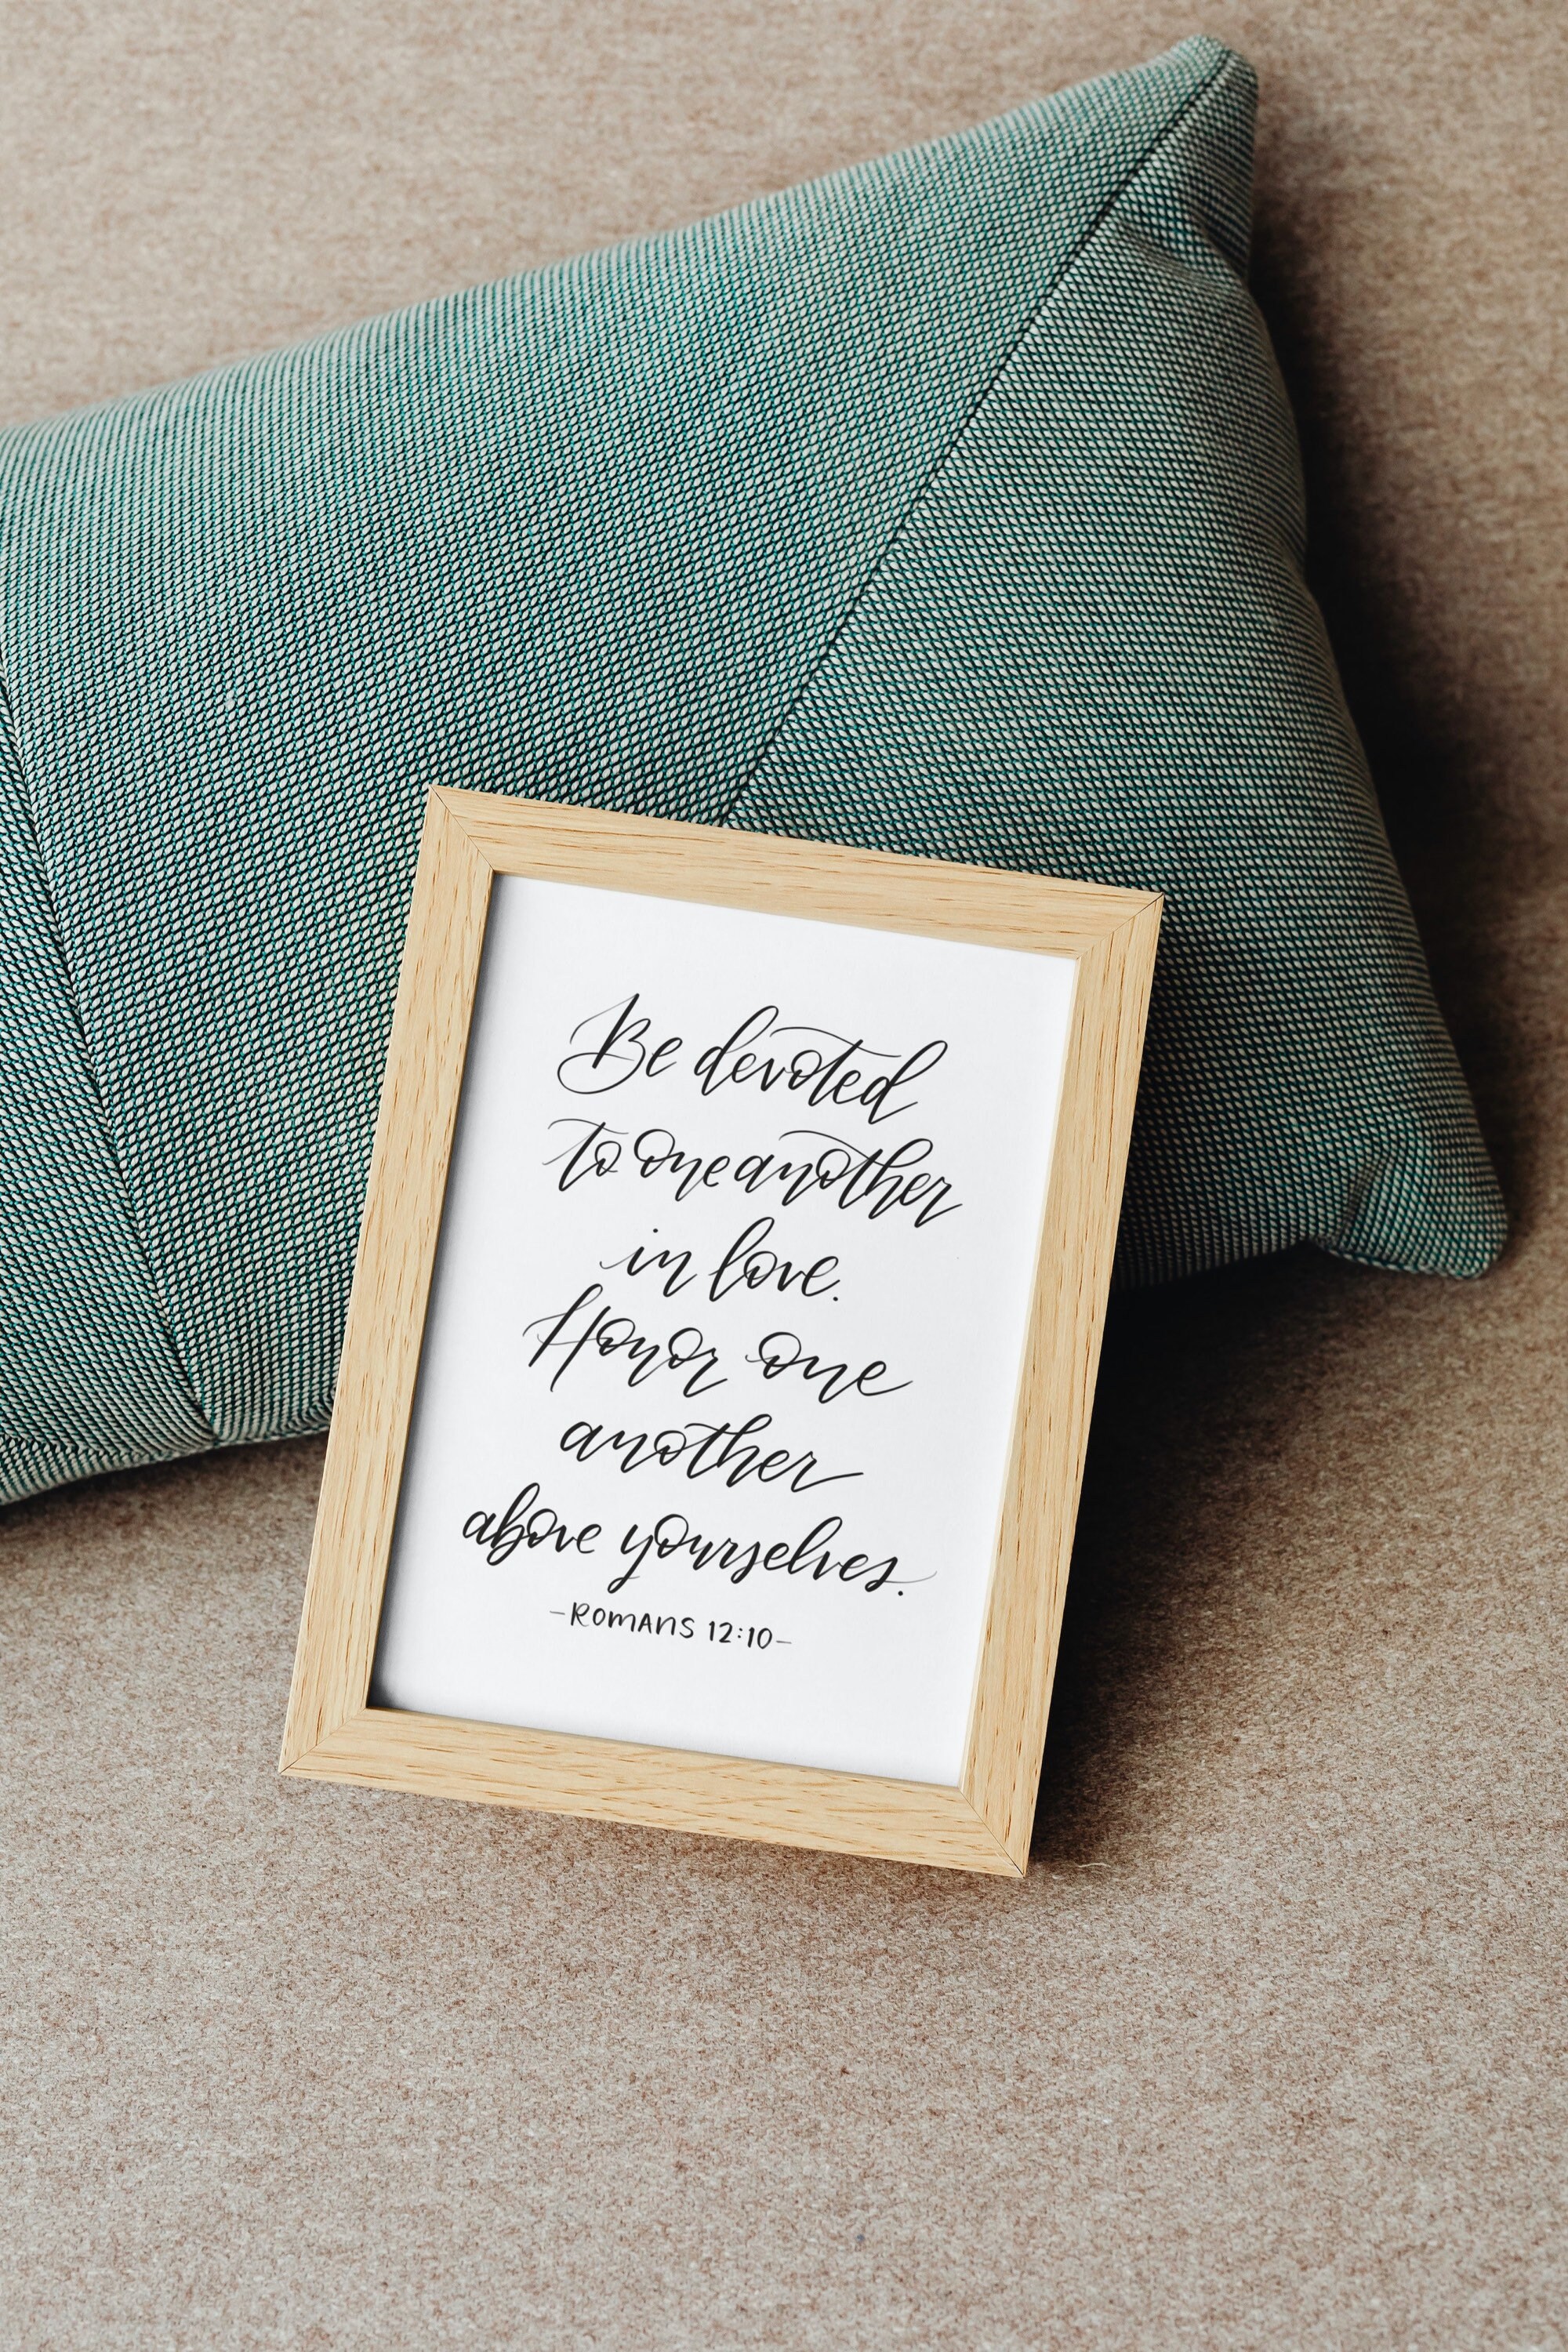 Be devoted
to one another
in love.
Honor one
another
above yourselves.
-ROMANS 12:10-